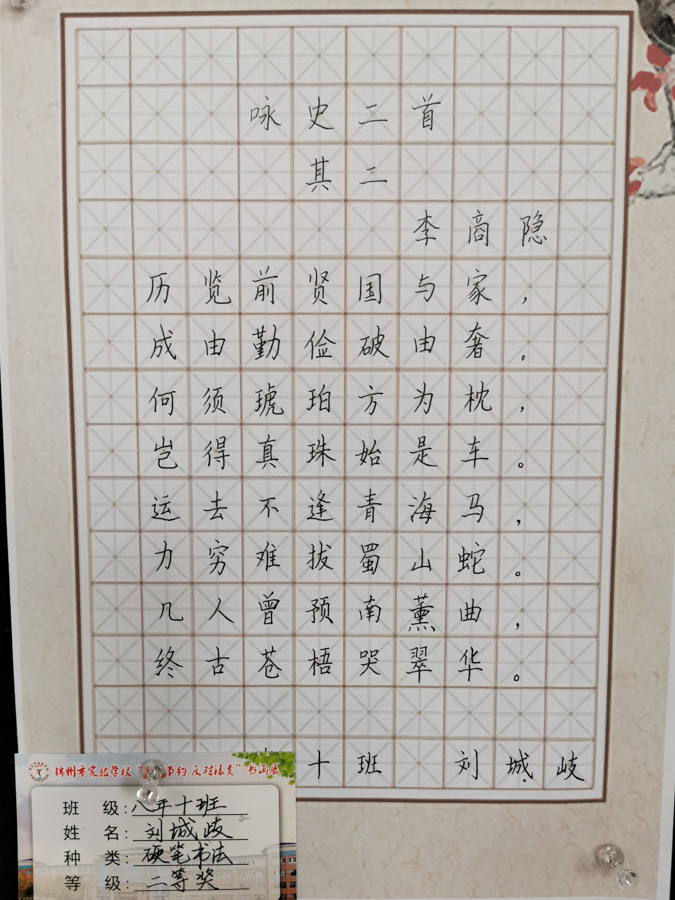 咏史二首
其二
李商隐
历览前贤国与家，
成由勤俭破由奢。
何须琥珀方为枕，
岂得真珠始是车。
运去不逢青海马，
力穷难拔蜀山蛇。
几人曾预南薰曲，
终古苍梧哭翠华。
十班 刘城岐
州市实验学校“节约 反对浪费”书画展
班 级：八年十班
姓 名：刘城岐
种 类：硬笔书法
等 级：二等奖